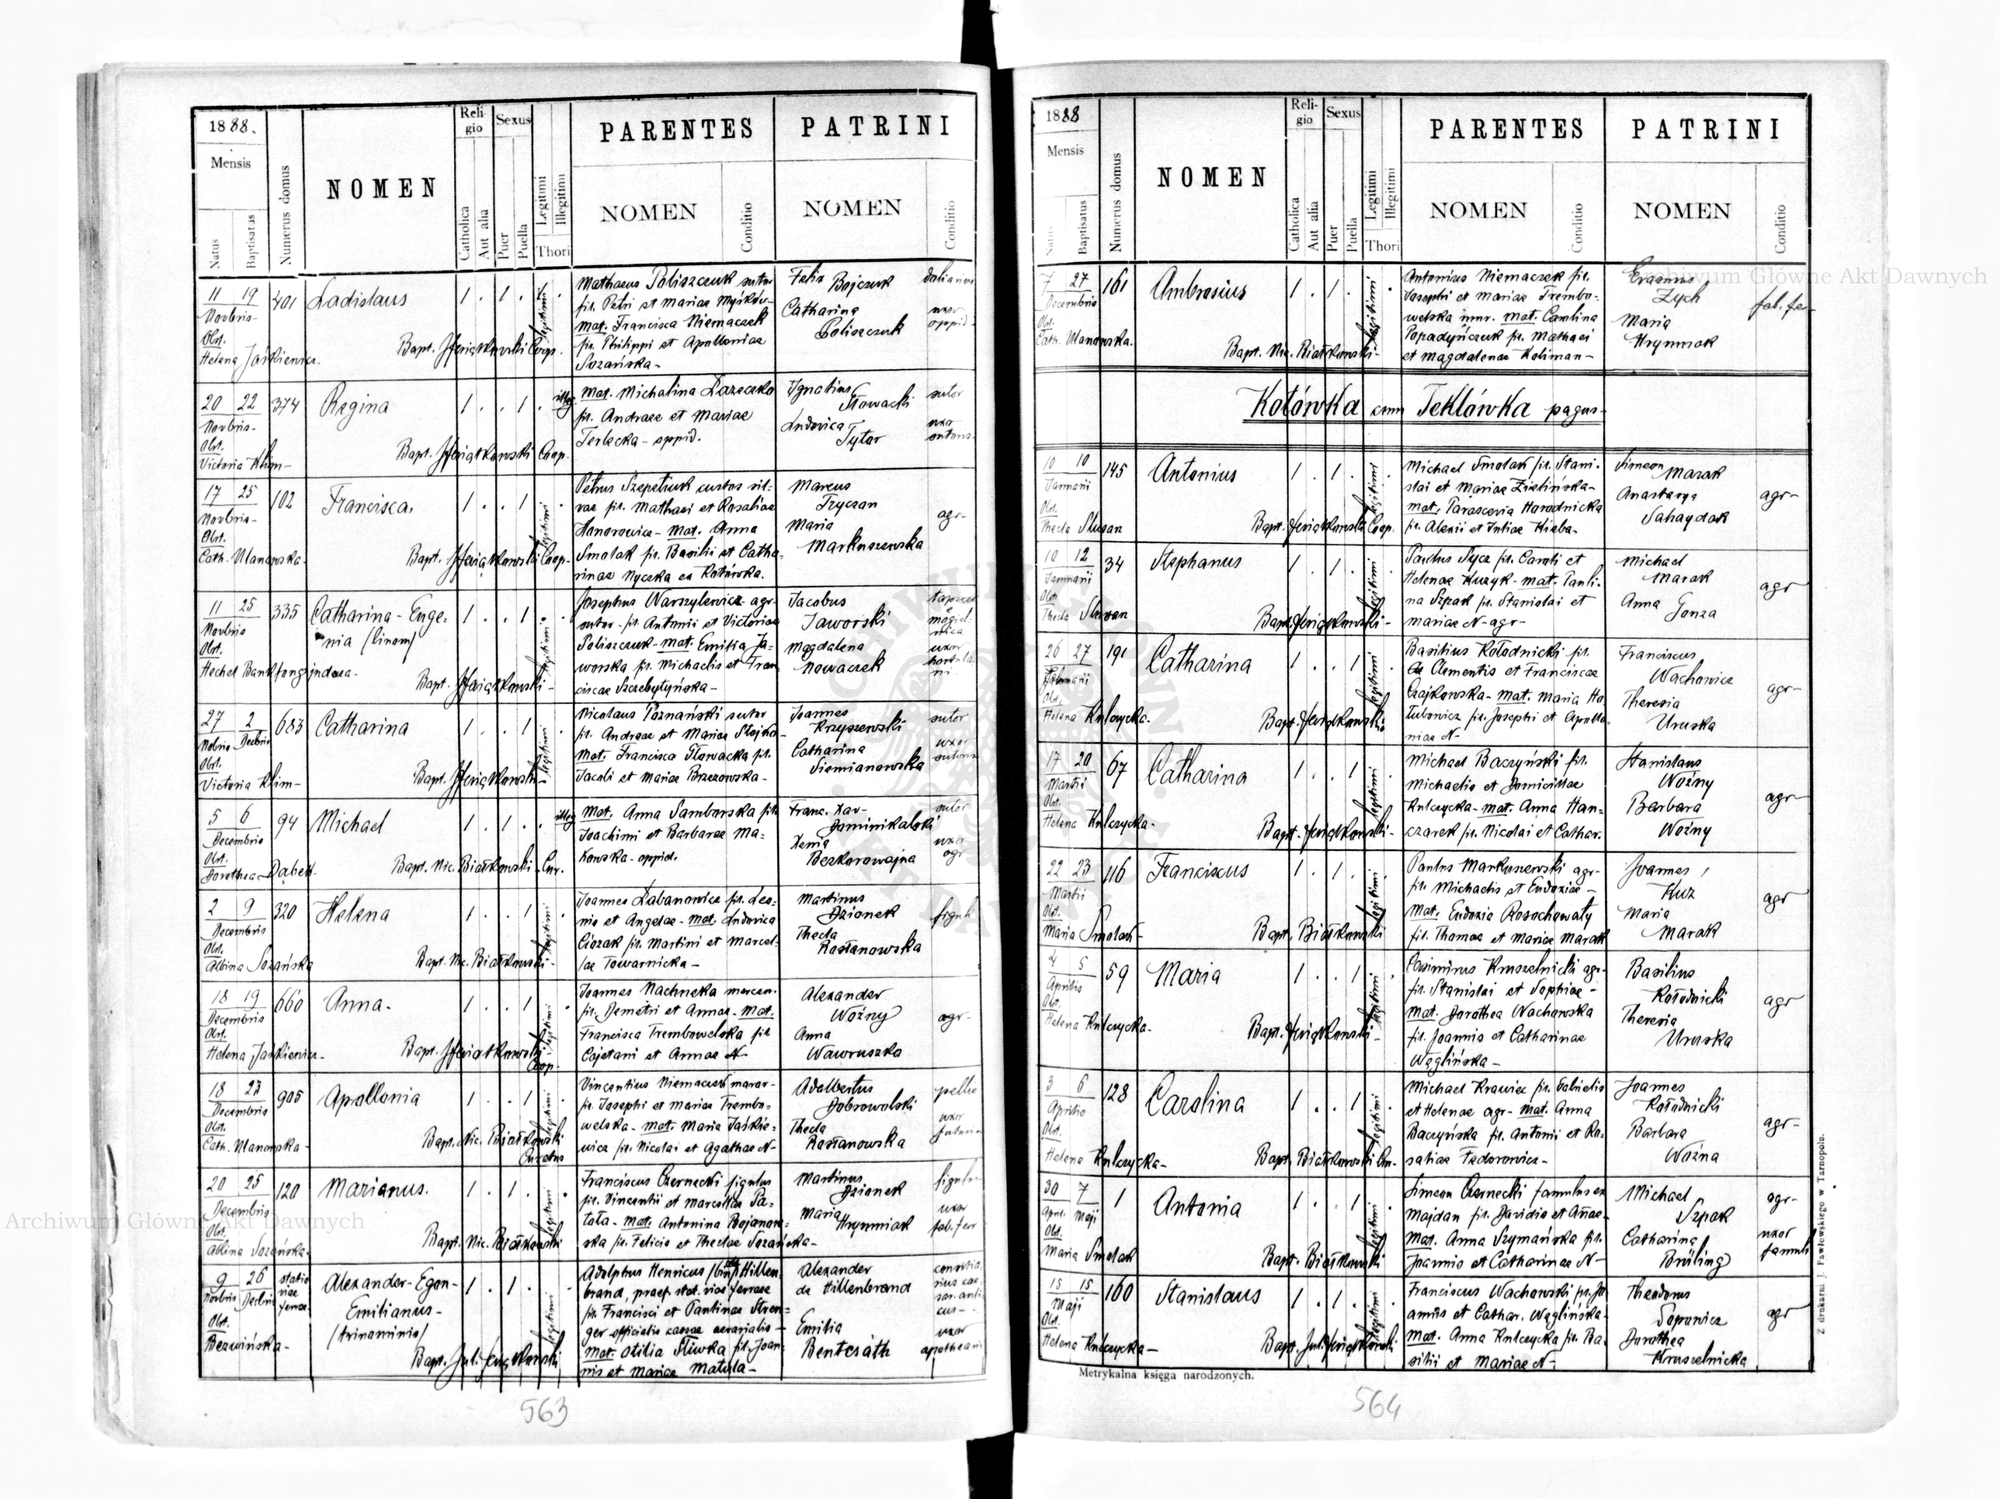 1888.
Mensis
Natus
Baptisatus
Numerus domus
NOMEN
Religio
Catholica
Aut alia
Sexus
Puer
Puella
Legitimi
Illegitimi
Thori
PARENTES
NOMEN
Conditio
PATRINI
NOMEN
Conditio
11 19
Novbris
Obst.
Helena Jaśkiewicz
401
Ladislaus
1 . 1 .
legitimi
Bapt. J. Coop.
Mathaeus Poliszczuk sutor
fil. Petri et Mariae
mat. Francisca Niemaczek
fil. Philippi et Apolloniae
Sozańska-
Felix Bojczuk
Catharina
Poliszczuk
uxor
oppid.
20 22
Novbris-
Obst.
Victoria Klim-
374
Regina
1 . . 1 .
illeg.
Bapt. Coop.
mat. Michalina
fil. Andreae et Mariae
Terlecka- oppid.
Ignatius
Słowacki
Ludovica
Tytor
sutor
uxor
17 25
Novbris-
Obst.
Cath. Ulanowska.
102
Francisca.
1 . . 1
legitimi
Bapt. Coop.
Petrus Szepetiuk custos sil-
vae fil. Mathaei et Rosaliae
mat. Anna
Smolak fil. Basilii et Catha-
rinae Nyczka ex Kotówka.
Marcus
Maria
Markuszewska
agr-
11 25
Novbris
Obst.
335
Catharina- Euge-
nia (binom)
1 . . 1 .
legitimi
Bapt.
Josephus Warszylewicz agr-
sutor- fil. Antonii et Victoriae
Poliszczuk- mat. Emilia Ja-
worska fil. Michaelis et Fran
ciscae
Jacobus
Jaworski
Magdalena
Nowaczek
uxor
27 2
Novbris Decbris
Obst.
Victoria Klim-
683
Catharina
1 . . 1
legitimi
Bapt.
Nicolaus Poznański sutor
fil. Andreae et Mariae
mat. Francisca Słowacka fil.
Jacobi et Mariae Brzezowska-
Joannes
Krzyszewski
Catharina
Siemianowska
sutor
uxor
5 6
Decembris
Obst.
Dorothea
94
Michael
1 . 1 . .
illeg
Bapt. Nic. Białkowski- Cur.
mat. Anna Samborska fil.
Joachimi et Barbarae Ma-
kowska- oppid.
Franc. Xav-
Dominikalski
Xenia
Bezkorowajna
sutor
uxor
agr
2 9
Decembris
Obst.
Albina Sozańska
320
Helena
1 . . 1
legitimi
Bapt. Nic. Białkowski-
Joannes Łabanowicz fil. Leo-
nis et Angelae- mat. Ludovica
Ciezak fil. Martini et Marcel-
lae Towarnicka-
Martinus
Dzionek
Thecla
Rostanowska
figuli
18 19
Decembris
Obst.
Helena Jaśkiewicz-
660
Anna-
1 . . 1
legitimi
Bapt. Coop.
Joannes Nachneka mercen.
fil. Demetri et Annae- mat.
Francisca Trembowelska fil
Cajetani et Annae N-
Alexander
Woźny
Anna
Waworuszka
agr-
18 23
Decembris
Obst.
Cath. Ulanowska-
905
Apollonia
1 . . 1 .
legitimi
Bapt. Nic. Białkowski
Curatus
Vincentius Niemaczek
fil. Josephi et Mariae Trembo-
welska- mat. Maria Jaśkie-
wicz fil. Nicolai et Agathae N-
Adalbertus
Dobrowolski
Thecla
Rostanowska
pellio
uxor
20 25
Decembris
Obst.
Albina Sozańska.
120
Marianus.
1 . 1 .
legitimi
Bapt. Nic. Białkowski
Franciscus Czernecki figulus
fil. Vincentii et Marcellae Pa-
tata- mat. Antonina Bojanow-
ska fil. Felicis et Theclae Sozańska-
Martinus
Dzionek
Maria
Hrynniak
figulus
uxor
fab. fer
9 26
Novbris Decbris
Obst.
Bezwińska-
statio
viae
ferreae
Alexander- Egon-
Emilianus-
(trinominis)
1 . 1 .
legitimi
Bapt. Jul.
Adolphus Henricus (bin) Hillen-
brand, praef. stat. viae ferreae
fil. Francisci et Paulinae Stren-
ger officialis cassae aerarialis-
mat. Otilia Śliwka fil. Joan-
nis et Mariae Matula-
Alexander
de Hillenbrand
Emilia
Bentesáth
uxor
563
1888
Mensis
Natus
Baptisatus
Numerus domus
NOMEN
Religio
Catholica
Aut alia
Sexus
Puer
Puella
Legitimi
Illegitimi
Thori
PARENTES
NOMEN
Conditio
PATRINI
NOMEN
Conditio
7 27
Decembris
Obst.
Cath. Ulanowska.
161
Ambrosius
1 . 1 .
legitimi
Bapt. Nic. Białkowski-
Antonius Niemaczek fil.
Josephi et Mariae Trembo-
welska mur. mat. Carolina
Popadyńczuk fil. Mathaei
et Magdalenae Koliman-
Erasmus
Zych
Maria
Hrynniak
fab. fer
Kotówka cum Teklówka pagus-
10 10
Januarii
Obst.
Thecla Sluzan
145
Antonius
1 . 1 .
legitimi
Bapt. Coop.
Michael Smolak fil. Stani-
slai et Mariae Zielińska-
mat. Parascevia Horodnicka
fil. Alexii et Juliae
Simeon
Mazak
Anastasya
Sahaydak
agr-
10 12
Januarii
Obst.
Thecla Sluzan
34
Stephanus
1 . 1 .
legitimi
Bapt.
Paulus Sycz fil. Caroli et
Helenae Kuzyk- mat. Pauli-
na Szpak fil. Stanislai et
Mariae N- agr-
Michael
Marak
Anna Gonza
agr
26 27
Obst.
Helena Kulczycka.
191
Catharina
1 . . 1
legitimi
Bapt.
Basilius Kołodnicki fil.
Clementis et Franciscae
Czajkowska- mat. Maria Ho
łubowicz fil. Josephi et Apollo-
niae N-
Franciscus
Wachowicz
Theresia
Uruska
agr-
17 20
Martii
Obst.
Helena Kulczycka.
67
Catharina
1 . . 1
legitimi
Bapt.
Michael Baczyński fil.
Michaelis et Domicillae
Kulczycka- mat. Anna Han-
czarek fil. Nicolai et Cathar.
Stanislaus
Woźny
Barbara
Woźny
agr-
22 23
Martii
Obst.
Maria Smolak-
116
Franciscus
1 . 1 .
legitimi
Bapt. Białkowski
Paulus Markuszewski agr-
fil. Michaelis et Eudoxiae-
mat. Eudoxia Rosochowaty
fil. Thomae et Mariae Marak
Joannes
Kuz
Maria
Marak
agr
4 5
Aprilis
Obst.
Helena Kulczycka.
59
Maria
1 . . 1
legitimi
Bapt.
Casimirus Kruszelnicki agr-
fil. Stanislai et Sophiae-
mat. Dorothea Wachowska
fil. Joannis et Catharinae
Węglińska-
Basilius
Kołodnicki
Theresia
Uruska
agr
3 6
Aprilis
Obst.
Helena Kulczycka-
128
Carolina
1 . . 1
legitimi
Bapt. Białkowski Cu-
Michael Krawiec fil. Gabrielis
et Helenae agr- mat. Anna
Baczyńska fil. Antonii et Ro-
saliae Fedorowicz-
Joannes
Kołodnicki
Barbara
Woźna
agr-
30 7
Aprilis Maji
Obst.
Maria Smolak
1
Antonia
1 . . 1
legitimi
Bapt. Białkowski
Simeon Czernecki famulus ex
Majdan fil. Davidis et Annae-
mat. Anna Szymańska fil.
Joannis et Catharinae N-
Michael
Szpak
Catharina
Brüling
agr-
uxor
famuli
15 15
Maji
Obst.
Helena Kulczycka-
160
Stanislaus
1 . 1 .
legitimi
Bapt. Jul.
Franciscus Wachowski fil. Jo
annis et Cathar. Węglińska-
mat. Anna Kulczycka fil. Ba-
silii et Mariae N-
Theodorus
Sopowicz
Dorothea
Kruszelnicka
agr
Metrykalna księga narodzonych.
Z drukarni J. Pawłowskiego w Tarnopolu.
564
Archiwum Główne Akt Dawnych
Archiwum Główne Akt Dawnych